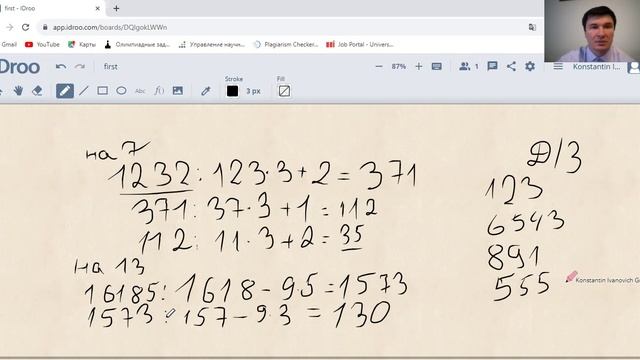 first - IDroo
app.idroo.com/boards/DQlgokLWWn
Gmail YouTube Карты Олимпиадные зад... Управление научн... Plagiarism Checker... Job Portal - Univers...
Droo first 87% 1 Konstantin I...
Stroke 3 px Fill
Abc f(x)
на 7
1232: 123·3+2=371
371: 37·3+1=112
112: 11·3+2=35
на 13
16185: 1618-9·5=1573
1573: 157-9·3=130
Д/З
123
6543
891
555
Konstantin Ivanovich G